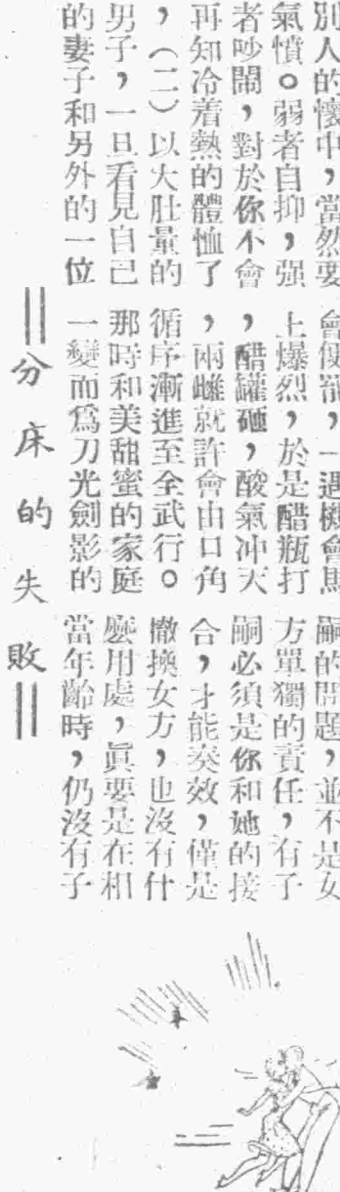 別人的懷中，當然要
氣憤。弱者自抑，强
者吵鬧，對於你不會
再知冷着熱的體恤了
，（二）以大肚量的
男子，一旦看見自己
的妻子和另外的一位
會便罷，一遇機會馬
上爆烈，於是醋瓶打
，醋罐砸，酸氣冲天
，兩雌就許會由口角
循序漸進至全武行。
那時和美甜蜜的家庭
一變而爲刀光劍影的
嗣的問題，並不是女
方單獨的責任，有子
嗣必須是你和她的接
合，才能奏效，僅是
撤換女方，也沒有什
麽用處，眞要是在相
當年齡時，仍沒有子
分床的失敗